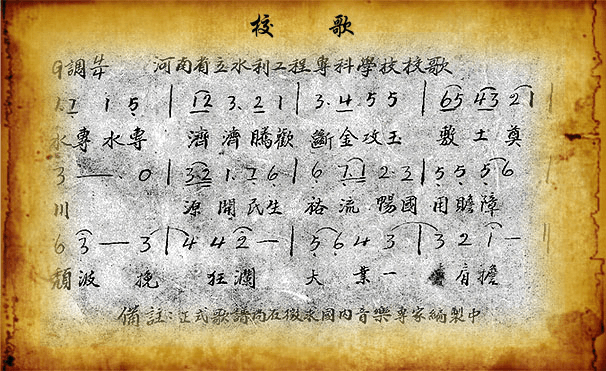 校 歌
G調 4/4 河南省立水利工程專科學校校歌
1.1 1 5 | 12 3.2 1 | 3.4 5 5 | 65 43 2 1
水專水專 濟濟騰歡 斷金攻玉 敷土奠
3 — — 0 | 3.2 1.7 6 | 6 7.1 2.3 | 5 5 5 6
川 源開民生 裕流暢國用贍障
6 3 — 3 | 4 4 2 — | 5 6 4 3 | 3 2 1 —
頹波 挽 狂瀾 大業一肩擔
備註：正式歌譜尚在徵求國內音樂專家編製中